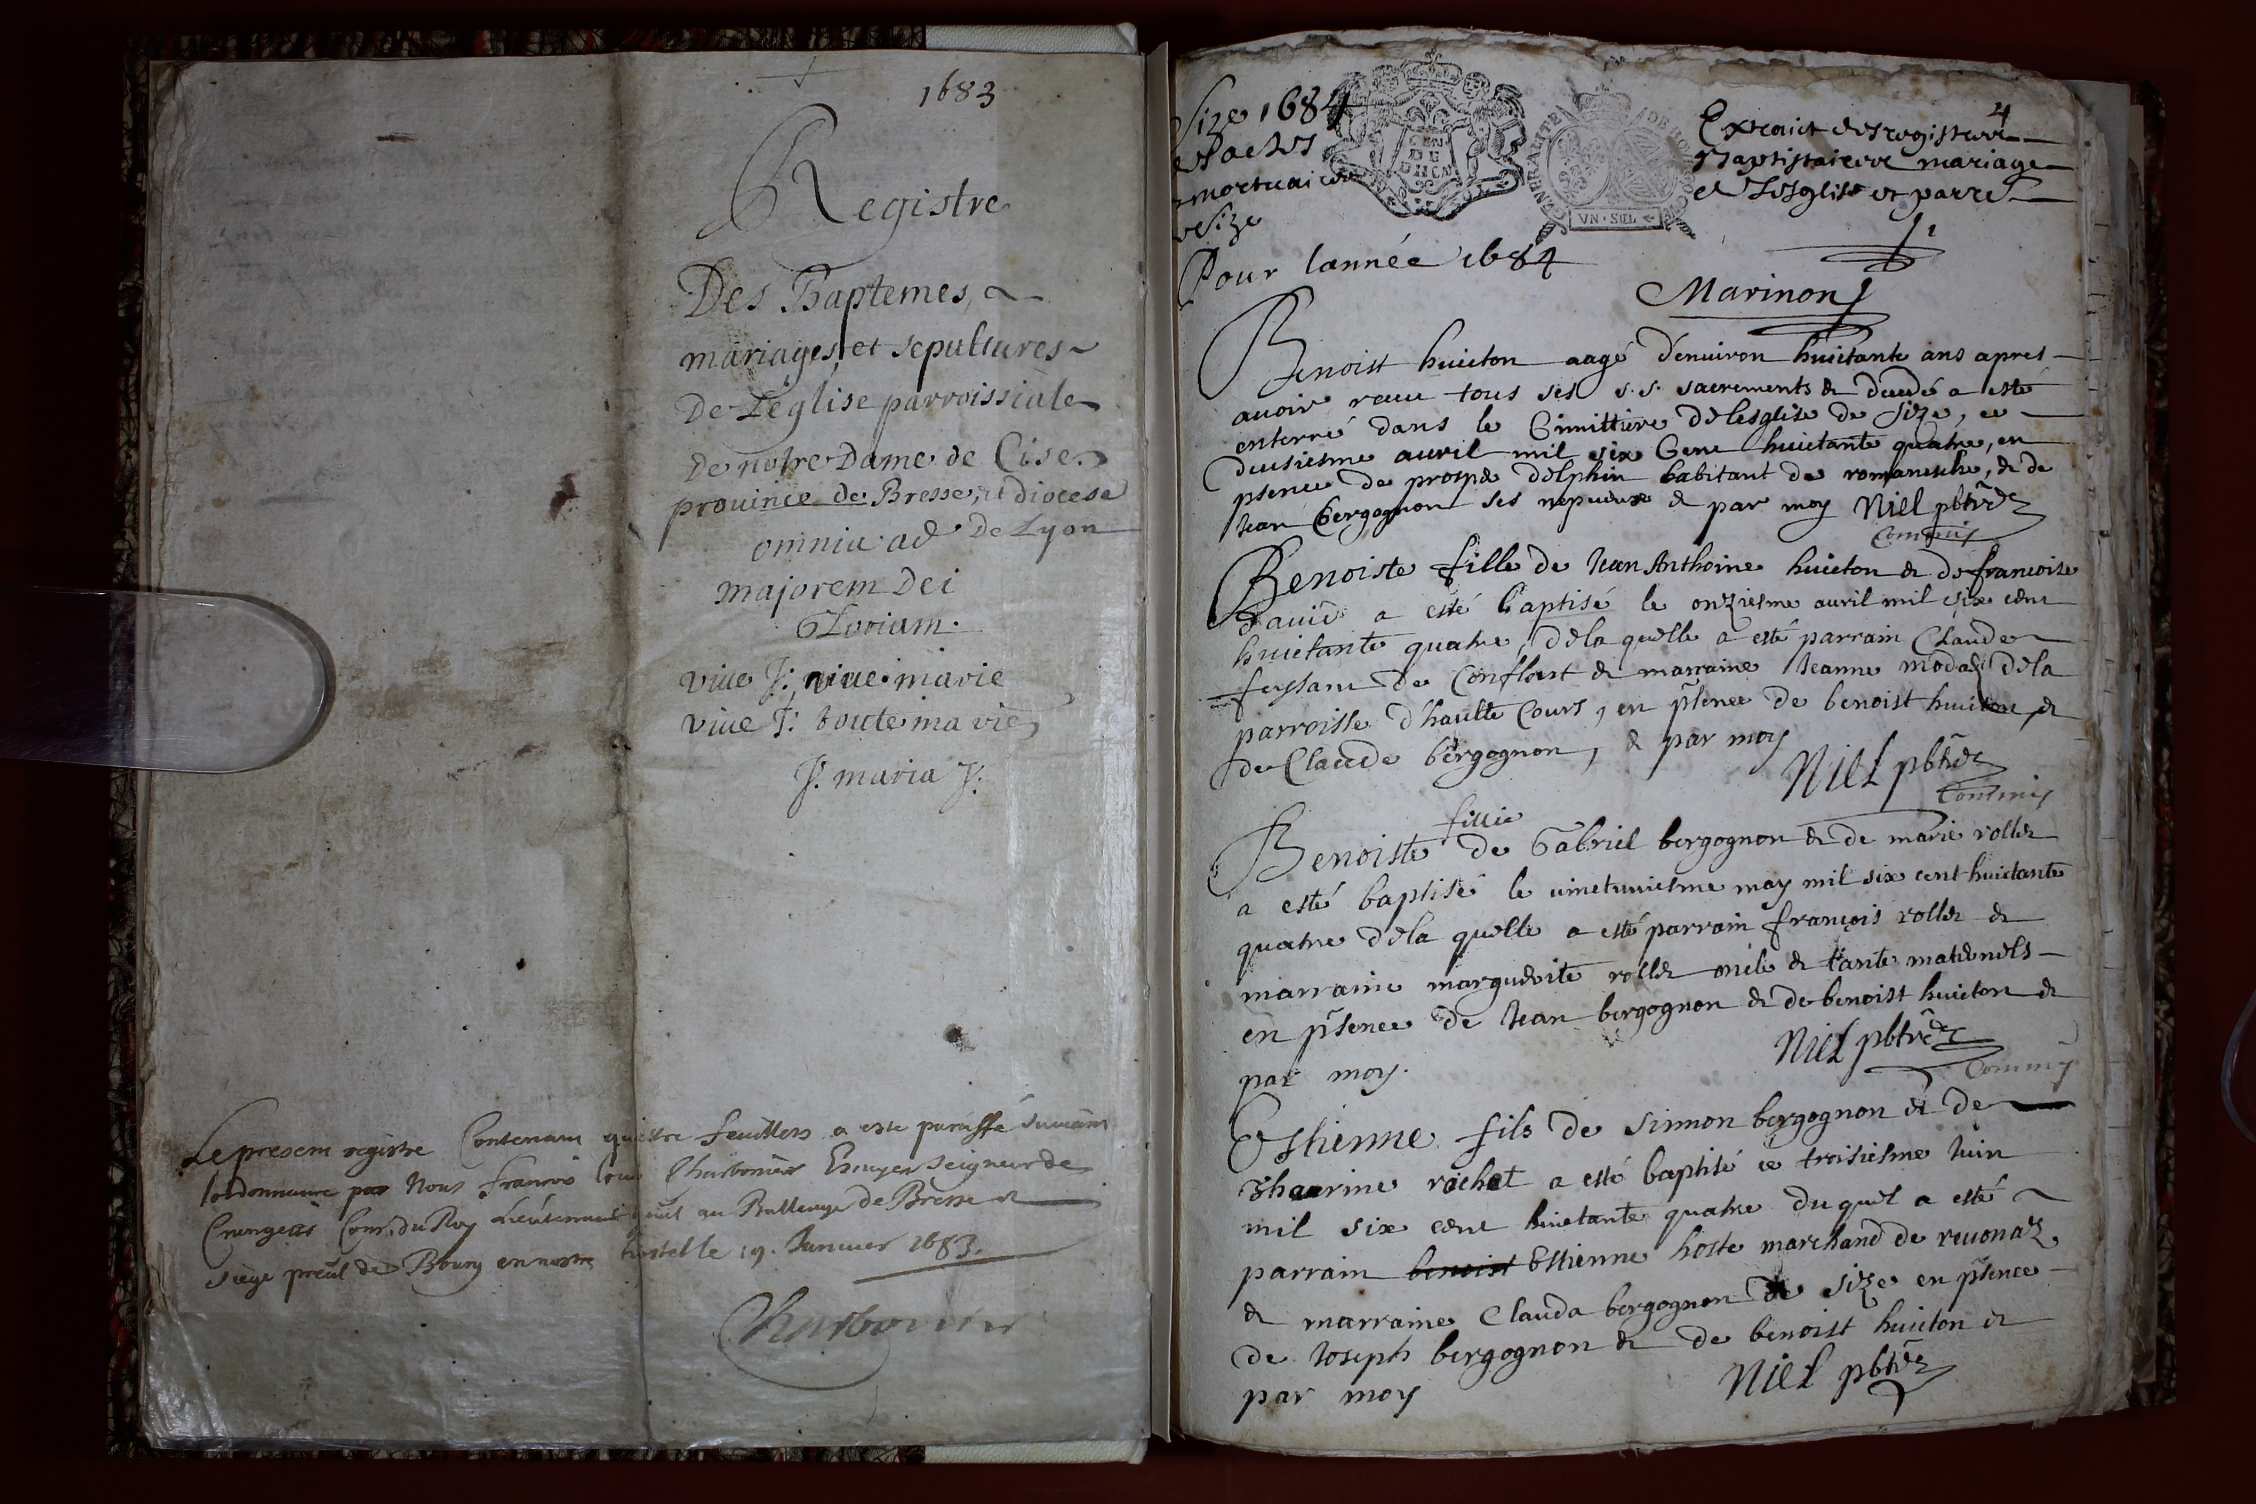 1683
Registre
Des Baptemes,
mariages, et sepultures
De L'eglise parroissiale
de notre Dame de Cise.
province de Bresse, et diocese
de Lyon
omnia ad
majorem Dei
Gloriam.
vive J: vive marie
vive J: toute ma vie
J: maria J:
Le present registre Contenant quattre feuillets a este paraffé suivant
lordonnance par Nous francois louis Charbonier Escuyer Seigneur de
Crangeat Conser. du Roy Lieutenant au Balliage de Bresse et
siege preal de Bourg en nostre hostel le 19. Janvier 1683.
Charbonier
Size 1684
mortuaire
Size
GEN
DE
VN · SIEL
4
Extraict des registre
Baptistaire mariage
et Lesglise et parre
Pour lannée 1684
Marinon
Benoist huicton aagé d'environ huictante ans apres
avoir receu tous ses s.s. sacrements & decedé a esté
enterré dans le Cimittiere de lesglise de Size, ce
deusiesme avril mil six Cent huictante quatre, en
psence de prospe delphin habitant de romanesche, & de
Jean bergognon ses nepueux & par moy Niel pbtre
Commis
Benoiste fille de Jean Anthoine huicton & de francoise
david a esté baptisé le onziesme avril mil six cent
huictante quatre, de la quelle a esté parrain Claude
feysant de Conflant & marraine Jeanne modas de la
parroisse d'haulte Cours, en psence de benoist huicton, &
de Claude bergognon, & par moy
Niel pbtre
Commis
fillie
Benoiste de Gabriel bergognon & de marie rollet
a esté baptisé le vinctuniesme may mil six cent huictante
quatre de la quelle a esté parrain françois rollet &
marraine marguerite rollet oncle & tante maternels
en psence de Jean bergognon & de benoist huicton &
par moy.
Niel pbtre
Commis
Estienne fils de Simon bergognon & de
rochet a esté baptisé ce troisiesme Juin
mil six cent huictante quatre du quel a esté
parrain benoist Estienne hoste marchand de revonaz
& marraine Clauda bergognon de Size en psence
de Joseph bergognon & de benoist huicton &
par moy
Niel pbtre